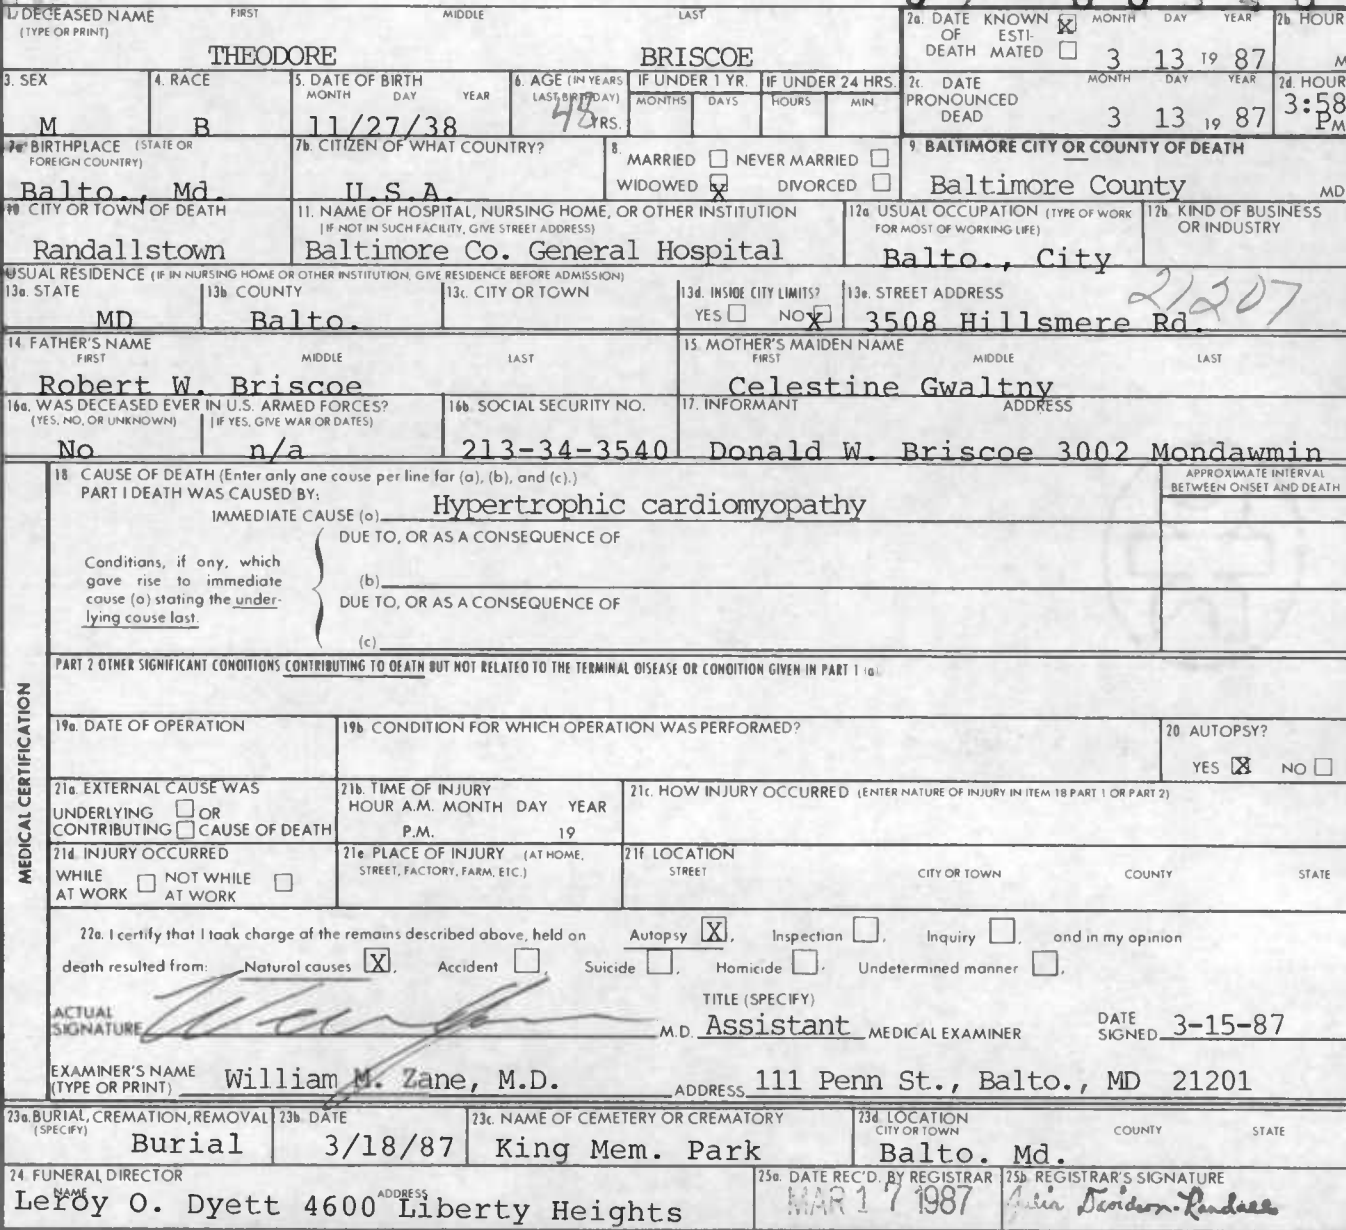 1. DECEASED NAME FIRST MIDDLE LAST
(TYPE OR PRINT)
THEODORE BRISCOE
2a. DATE KNOWN X MONTH DAY YEAR
OF ESTI-
DEATH MATED
3 13 19 87
2b HOUR
M
3. SEX
M
4. RACE
B
5. DATE OF BIRTH
MONTH DAY YEAR
11/27/38
6. AGE (IN YEARS
LAST BIRTHDAY)
48 YRS.
IF UNDER 1 YR.
MONTHS DAYS
IF UNDER 24 HRS.
HOURS MIN.
2c. DATE MONTH DAY YEAR
PRONOUNCED
DEAD
3 13 19 87
2d. HOUR
3:58
PM
7a BIRTHPLACE (STATE OR
FOREIGN COUNTRY)
Balto., Md.
7b. CITIZEN OF WHAT COUNTRY?
U.S.A.
8.
MARRIED NEVER MARRIED
WIDOWED X DIVORCED
9 BALTIMORE CITY OR COUNTY OF DEATH
Baltimore County MD
10 CITY OR TOWN OF DEATH
Randallstown
11. NAME OF HOSPITAL, NURSING HOME, OR OTHER INSTITUTION
(IF NOT IN SUCH FACILITY, GIVE STREET ADDRESS)
Baltimore Co. General Hospital
12a USUAL OCCUPATION (TYPE OF WORK
FOR MOST OF WORKING LIFE)
Balto., City
12b. KIND OF BUSINESS
OR INDUSTRY
USUAL RESIDENCE (IF IN NURSING HOME OR OTHER INSTITUTION, GIVE RESIDENCE BEFORE ADMISSION)
13a. STATE
MD
13b COUNTY
Balto.
13c. CITY OR TOWN
13d. INSIDE CITY LIMITS?
YES NO X
13e. STREET ADDRESS
21207
3508 Hillsmere Rd.
14 FATHER'S NAME
FIRST MIDDLE LAST
Robert W. Briscoe
15 MOTHER'S MAIDEN NAME
FIRST MIDDLE LAST
Celestine Gwaltny
16a. WAS DECEASED EVER IN U.S. ARMED FORCES?
(YES, NO, OR UNKNOWN) (IF YES, GIVE WAR OR DATES)
No n/a
16b SOCIAL SECURITY NO.
213-34-3540
17. INFORMANT ADDRESS
Donald W. Briscoe 3002 Mondawmin
MEDICAL CERTIFICATION
18 CAUSE OF DEATH (Enter only one couse per line for (a), (b), and (c).)
PART I DEATH WAS CAUSED BY:
IMMEDIATE CAUSE (a) Hypertrophic cardiomyopathy
APPROXIMATE INTERVAL
BETWEEN ONSET AND DEATH
DUE TO, OR AS A CONSEQUENCE OF
Conditians, if any, which
gave rise to immediate
cause (a) stating the under-
lying couse last.
(b)
DUE TO, OR AS A CONSEQUENCE OF
(c)
PART 2 OTHER SIGNIFICANT CONDITIONS CONTRIBUTING TO DEATH BUT NOT RELATED TO THE TERMINAL DISEASE OR CONDITION GIVEN IN PART 1 (a)
19a. DATE OF OPERATION
19b CONDITION FOR WHICH OPERATION WAS PERFORMED?
20 AUTOPSY?
YES X NO
21a. EXTERNAL CAUSE WAS
UNDERLYING OR
CONTRIBUTING CAUSE OF DEATH
21b. TIME OF INJURY
HOUR A.M. MONTH DAY YEAR
P.M. 19
21c. HOW INJURY OCCURRED (ENTER NATURE OF INJURY IN ITEM 18 PART 1 OR PART 2)
21d INJURY OCCURRED
WHILE NOT WHILE
AT WORK AT WORK
21e PLACE OF INJURY (AT HOME,
STREET, FACTORY, FARM, ETC.)
21f LOCATION
STREET CITY OR TOWN COUNTY STATE
22a. I certify that I took charge of the remains described above, held on Autopsy X, Inspection , Inquiry , and in my opinion
death resulted from: Natural causes X, Accident , Suicide , Homicide , Undetermined manner .
ACTUAL
SIGNATURE
M.D.
TITLE (SPECIFY)
Assistant MEDICAL EXAMINER
DATE
SIGNED 3-15-87
EXAMINER'S NAME
(TYPE OR PRINT) William M. Zane, M.D. ADDRESS 111 Penn St., Balto., MD 21201
23a. BURIAL, CREMATION, REMOVAL
(SPECIFY)
Burial
23b. DATE
3/18/87
23c. NAME OF CEMETERY OR CREMATORY
King Mem. Park
23d LOCATION
CITY OR TOWN COUNTY STATE
Balto. Md.
24 FUNERAL DIRECTOR
NAME ADDRESS
Leroy O. Dyett 4600 Liberty Heights
25a. DATE REC'D. BY REGISTRAR
MAR 17 1987
25b REGISTRAR'S SIGNATURE
Julia Davidson-Randall